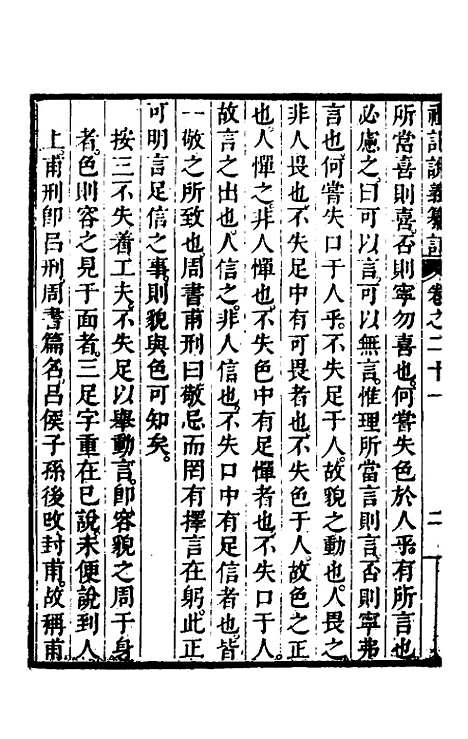 禮記說義纂訂 卷之二十一 二
所當喜則喜否則寧勿喜也何嘗失色於人乎有所言也
必慮之曰可以言可以無言惟理所當言則言否則寧弗
言也何嘗失口于人乎不失足于人故貌之動也人畏之
非人畏也不失足中有可畏者也不失色于人故色之正
也人憚之非人憚也不失色中有足憚者也不失口于人
故言之出也人信之非人信也不失口中有足信者也皆
一敬之所致也周書甫刑曰敬忌而罔有擇言在躬此正
可明言足信之事則貌與色可知矣
按三不失着工夫不失足以舉動言卽容貌之周于身
者色則容之見于面者三足字重在已說未便說到人
上甫刑卽呂刑周書篇名呂侯子孫後改封甫故稱甫